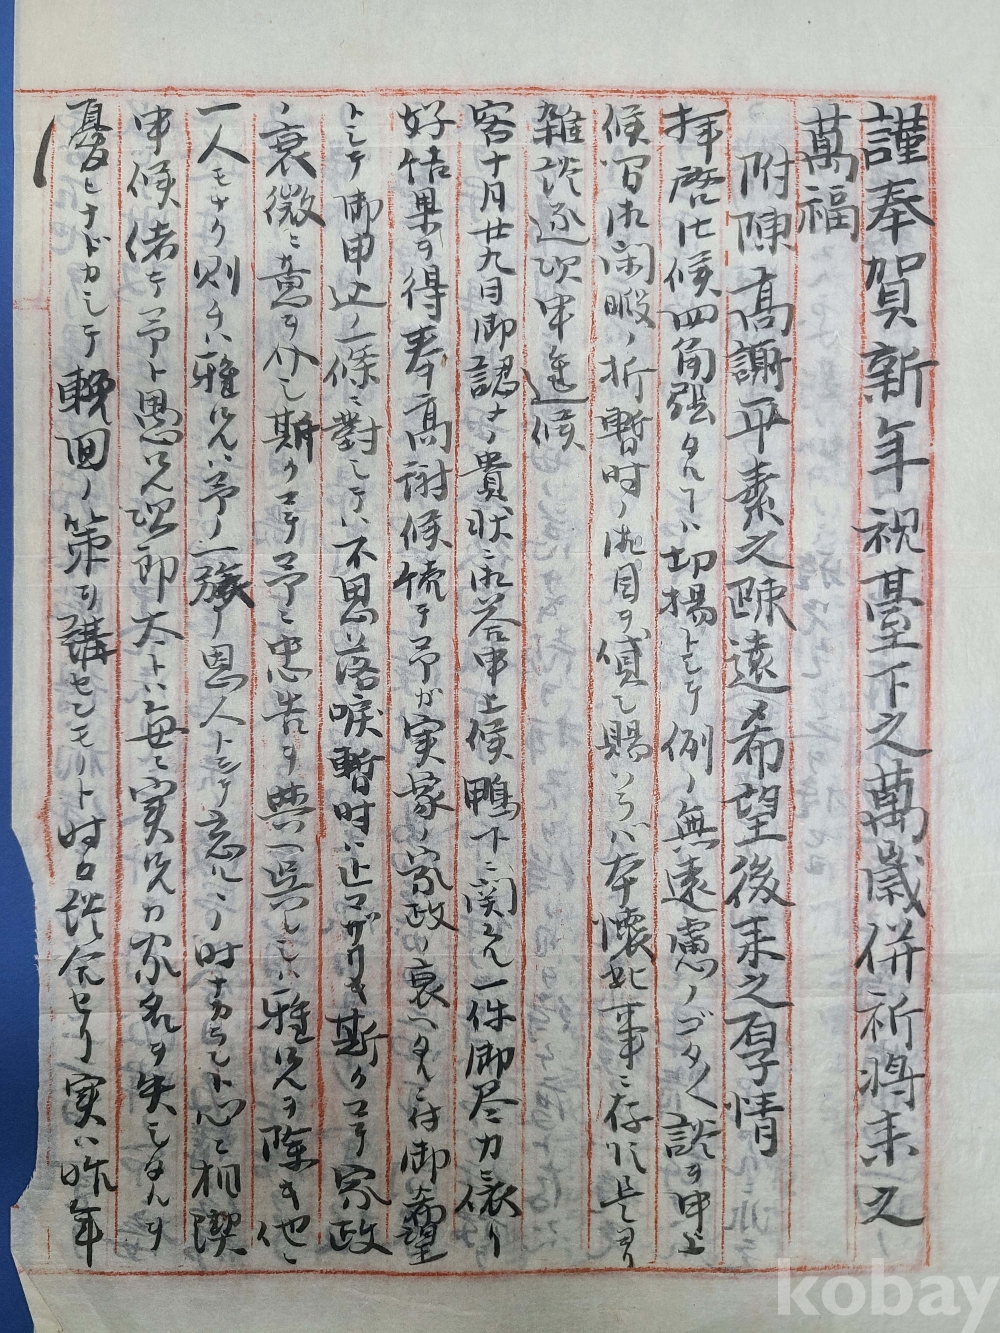 謹奉賀新年祝臺下之萬歳併祈將来之
萬福
附陳高謝平素之疎遠希望後来之厚情
拝啓此候四角張タル丁ハ切揚トシテ例ノ無遠慮ノゴタ〱談ヲ申上
候間御閑暇ノ折暫时ノ御目ヲ借シ賜ハラバ本懐此事ニ存候是ヨリ
雑談逐次申進候
客十月廿九日御認メノ貴状ニ御答申上候鴨下ニ関スル一件御尽力ニ依リ
好結果ヲ得奉高謝候偖テ予ガ実家ノ家政ノ衰ヘタルニ付御希望
トシテ御申込ノ一條ニ對シテハ不思落涙暫时ハ止マザリキ斯クマデ家政
ノ衰微ニ意ヲ介シ斯クマデ予ニ忠告ヲ與ヘ呉レシハ雅兄ヲ除キ他ニ
一人モナク則チハ雅兄ハ予ノ一簇ノ恩人トシテ忘ルヽ时ナカラント心ニ相禊
申候偖テ予ト愚兄啓即太トハ毎ニ実兄カ家名ヲ失シタルヲ
憂ヒナドカシテ輓回ノ策ヲ講セシモノト时々談合セリ実ハ昨年
kobay